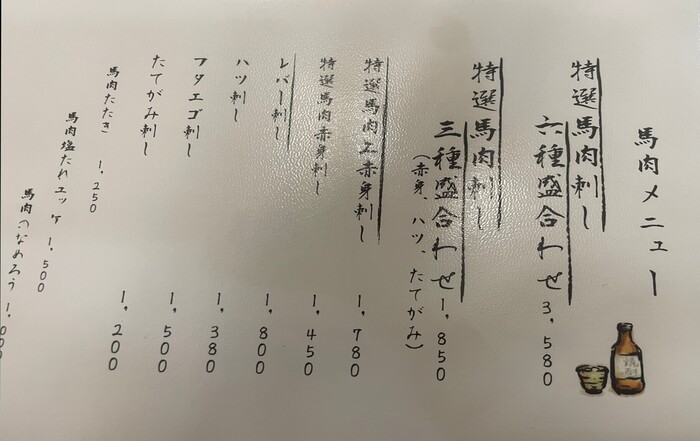 馬肉メニュー
特選馬肉刺し
六種盛合わせ 3,580
特選馬肉刺し
三種盛合わせ 1,850
(赤身、ハツ、たてがみ)
特選馬肉上赤身刺し 1,780
特選馬肉赤身刺し 1,450
レバー刺し 1,800
ハツ刺し 1,380
フタエゴ刺し 1,500
たてがみ刺し 1,200
馬肉たたき 1,250
馬肉塩だれユッケ 1,500
馬肉のなめろう
焼酎